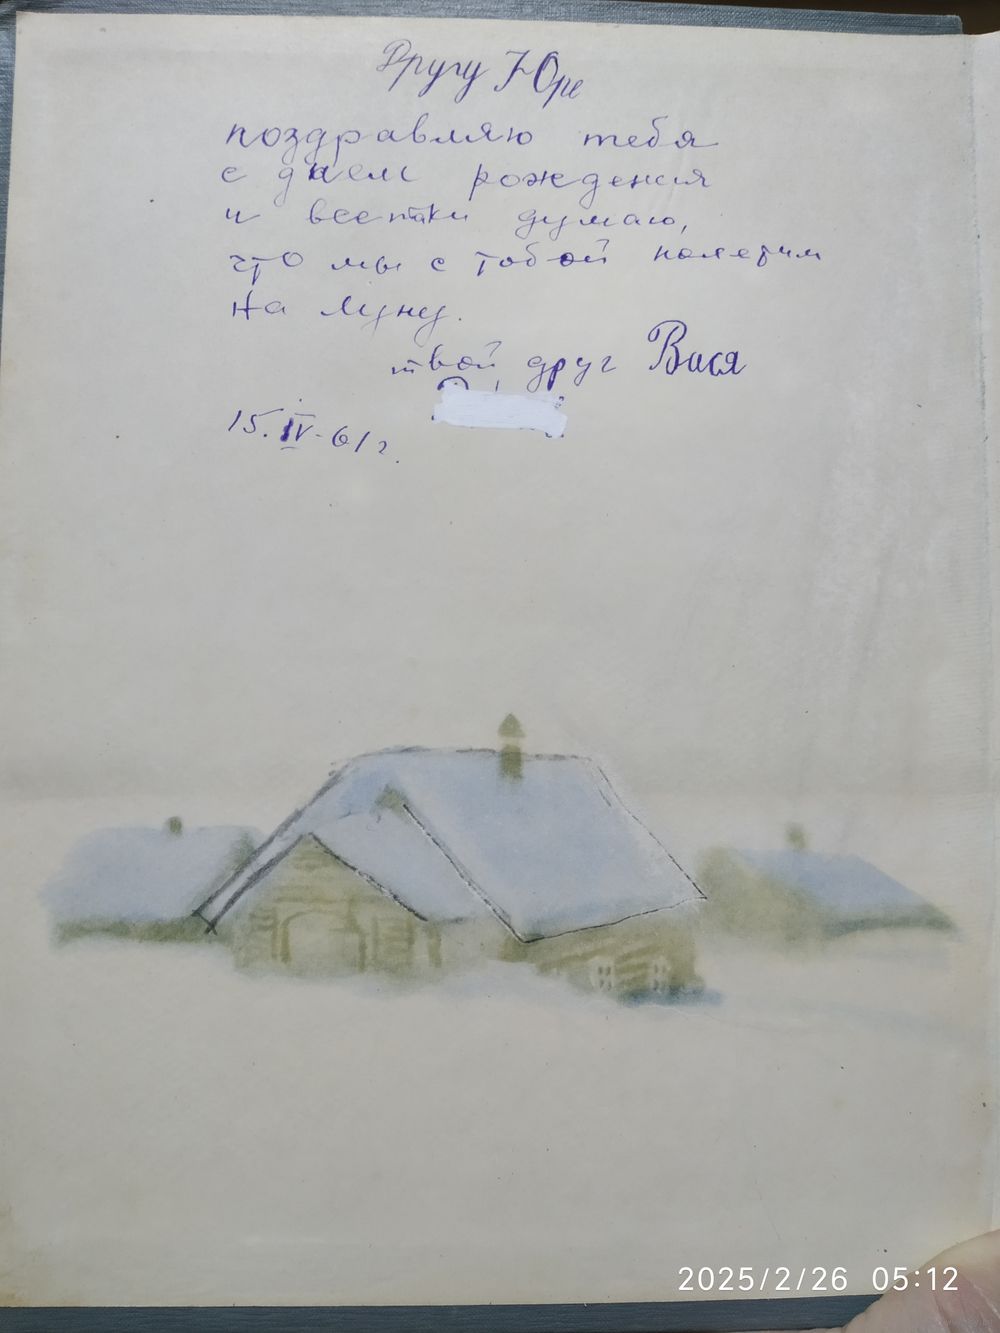 Другу Юре
поздравляю тебя
с днем рождения
и всетаки думаю,
что мы с тобой полетим
на Луну.
твой друг Вася
15.IV-61г.
2025/2/26 05:12